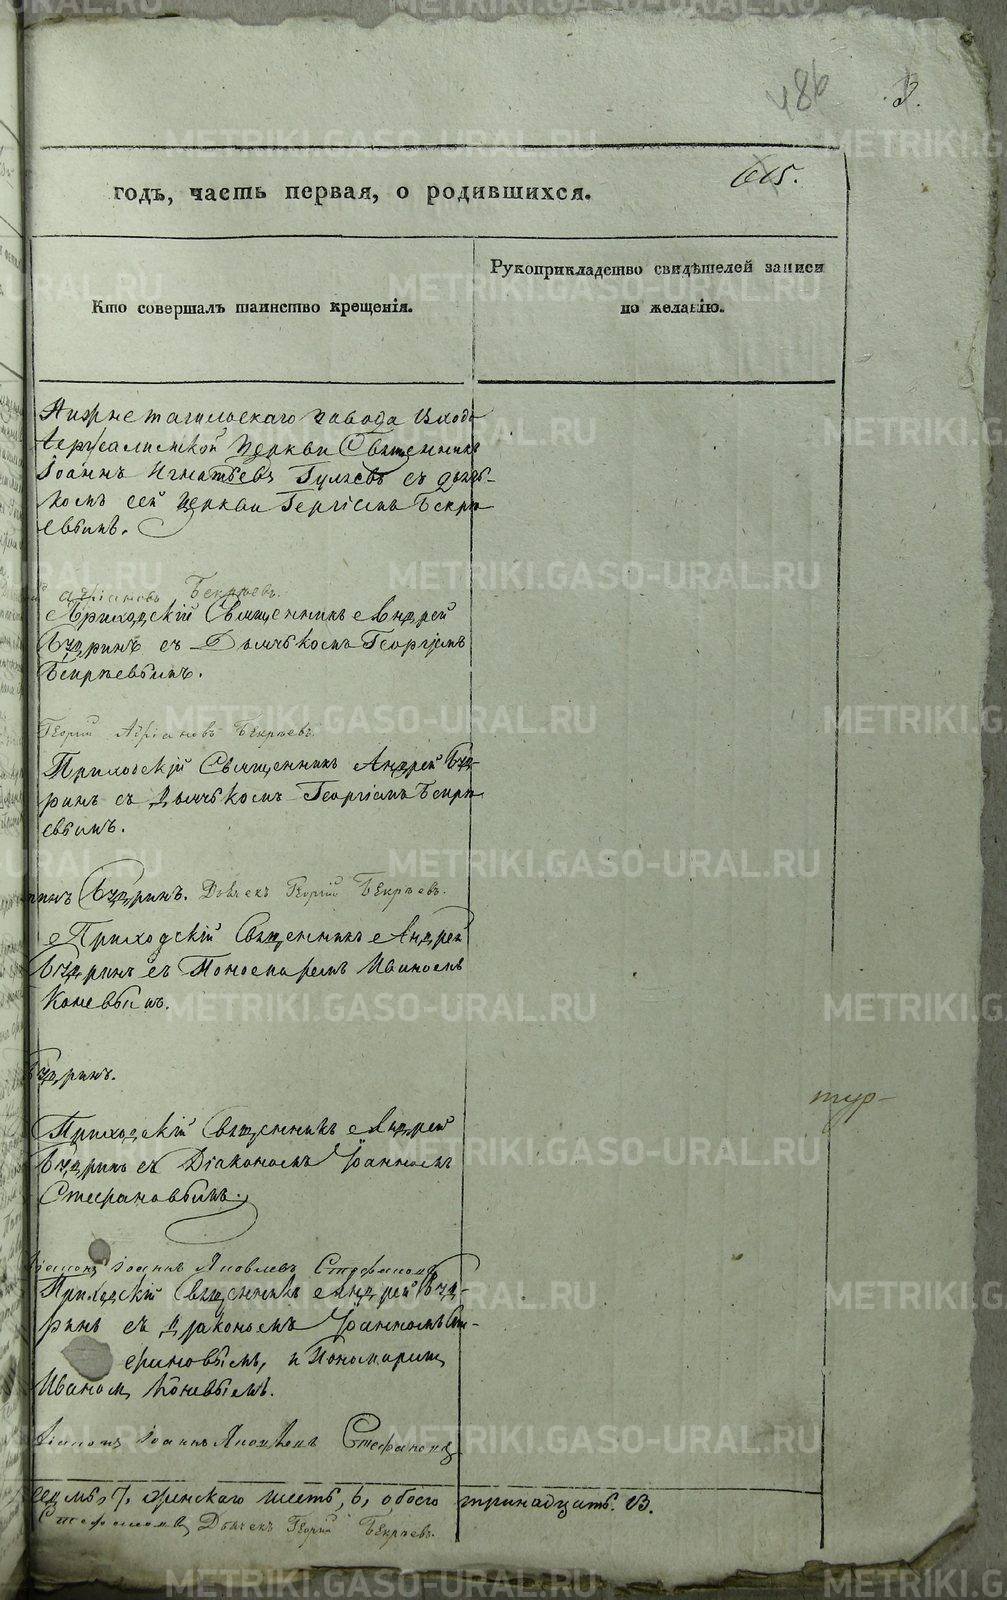 486
3.
615.
годъ, часть первая, о родившихся.
Кто совершалъ таинство крещенія.
Рукоприкладство свидѣтелей записи
по желанію.
Нижнетагильскаго завода Входо
Іерусалимской Церкви Священникъ
Іоаннъ Игнатьевъ съ дьяч-
комъ сей церкви Георгіемъ Бекрѣ
евымъ.
Адріановъ Бекрѣевъ.
Приходскій Священникъ Андрей
Будринъ съ Дьячькомъ Георгіемъ
Бекрѣевымъ.
Георгій Адріановъ Бекрѣевъ.
Приходскій Священникъ Андрей Буд-
ринъ съ Дьячькомъ Георгіемъ Бекрѣ
евымъ.
Будринъ. Дьячекъ Георгій Бекрѣевъ.
Приходскій Священникъ Андрей
Будринъ съ Пономаремъ Иваномъ
Коневымъ.
Будринъ.
тур-
Приходскій Священникъ Андрей
Будринъ съ Діакономъ Іоанномъ
Стефановымъ.
Діаконъ Іоаннъ Яковлевъ Стефановъ
Приходскій Священникъ Андрей Буд-
ринъ съ Діакономъ Іоанномъ Сте-
фановымъ, и Пономаремъ
Иваномъ Коневымъ.
Діаконъ Іоаннъ Яковлевъ Стефановъ
седмь, 7, женскаго шесть, 6, обоего тринадцать. 13.
Стефановъ Дьячекъ Георгій Бекрѣевъ.
METRIKI.GASO-URAL.RU